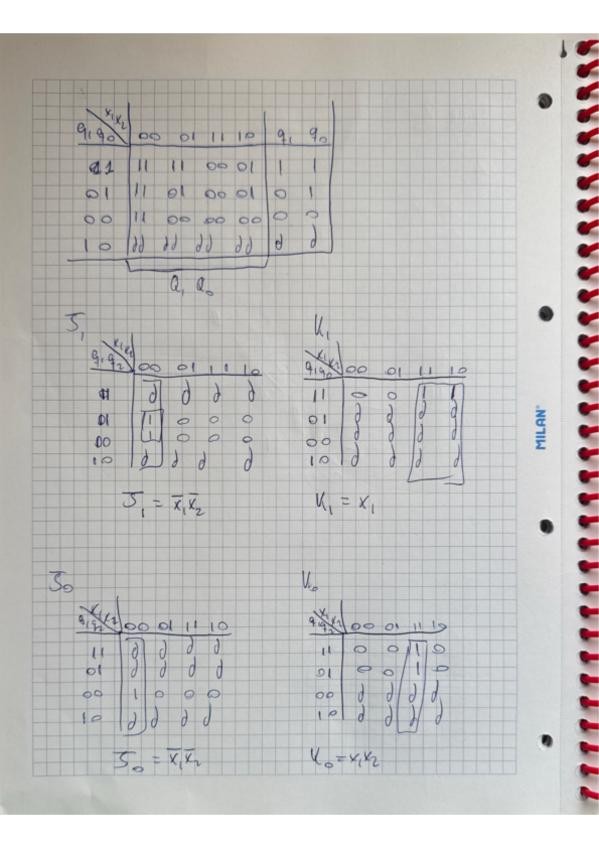 x₁x₂
q₁q₀ 00 01 11 10 q₁ q₀
11 11 11 00 01 1 1
01 11 01 00 01 0 1
00 11 00 00 00 0 0
10 dd dd dd dd d d
Q₁ Q₀
J₁
x₁x₂
q₁q₂ 00 01 11 10
11 d d d d
01 1 0 0 0
00 1 0 0 0
10 d d d d
J₁ = x̄₁x̄₂
K₁
x₁x₂
q₁q₀ 00 01 11 10
11 0 0 1 1
01 d d d d
00 d d d d
10 d d d d
K₁ = x₁
MILAN
J₀
x₁x₂
q₁q₂ 00 01 11 10
11 d d d d
01 d d d d
00 1 0 0 0
10 d d d d
J₀ = x̄₁x̄₂
K₀
x₁x₂
q₁q₂ 00 01 11 10
11 0 0 1 0
01 0 0 1 0
00 d d d d
10 d d d d
K₀ = x₁x₂